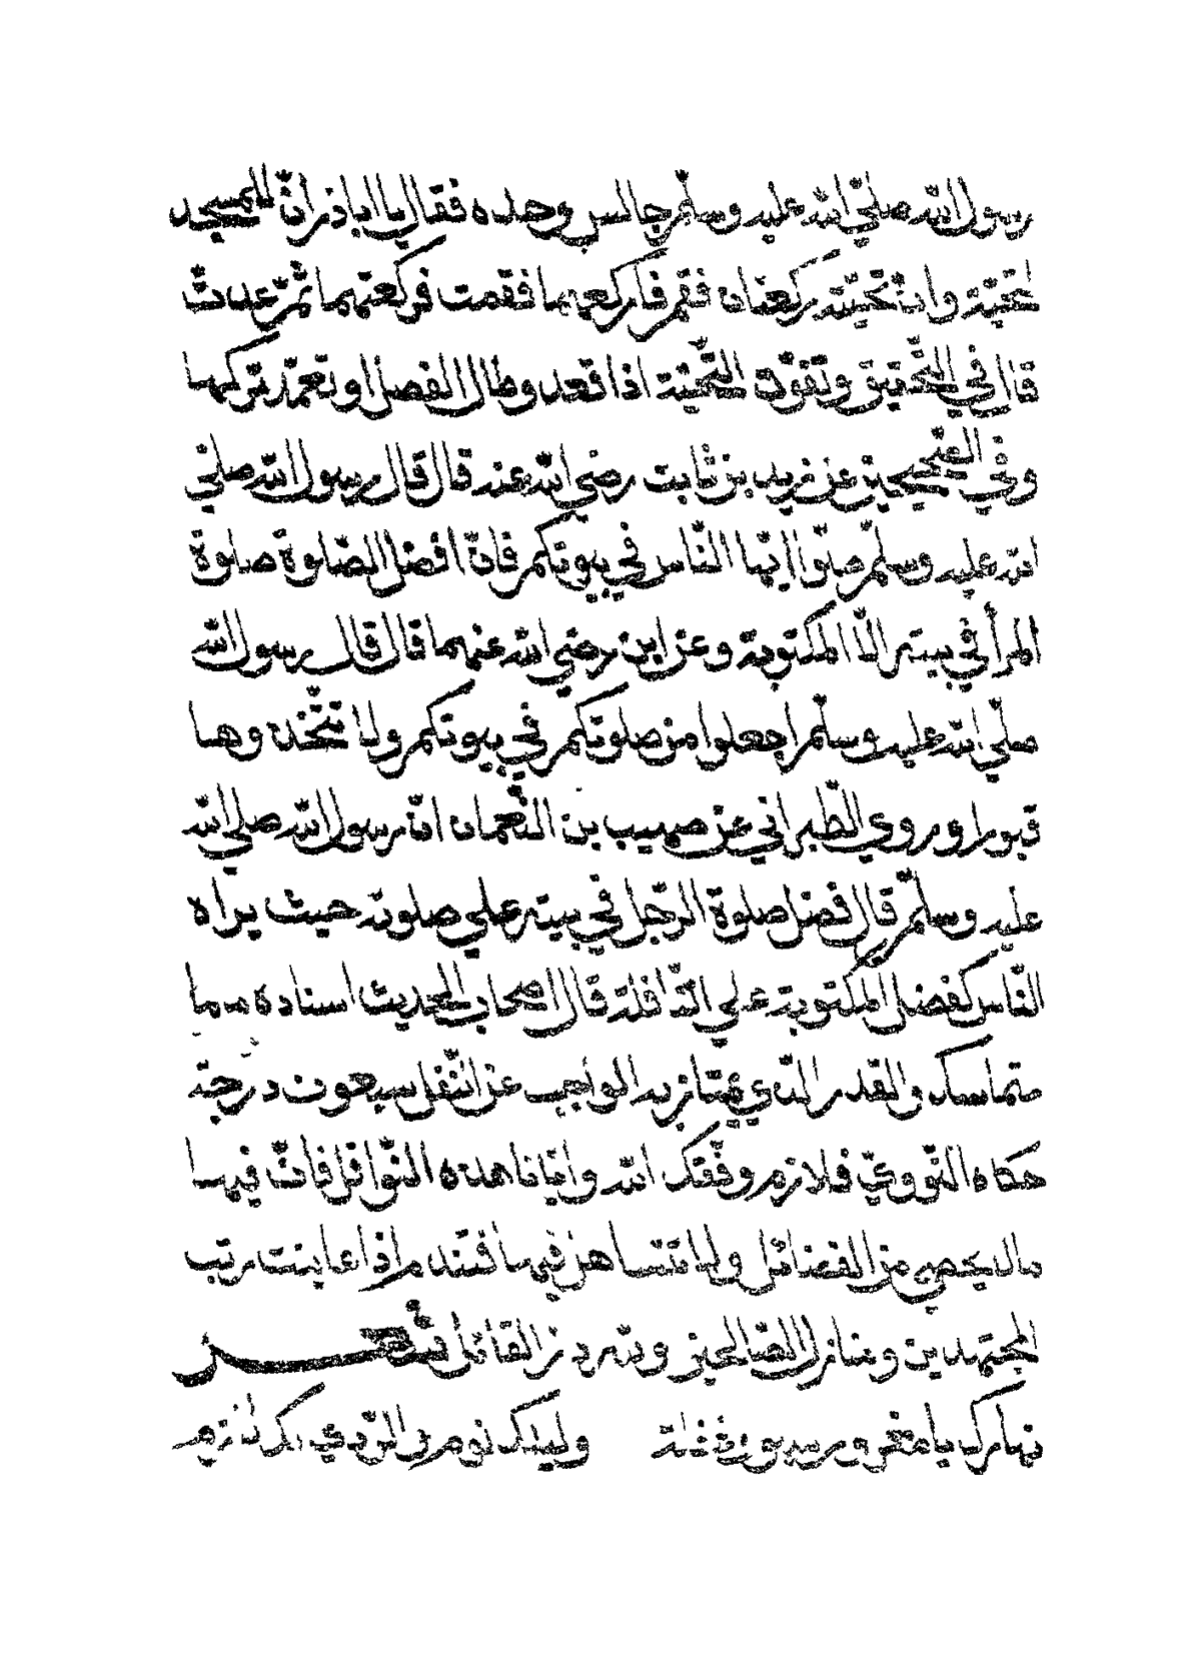 رسول الله صلّي الله عليه وسلّم جالس وحده فقال يا اباذر انّ للمسجد
تحيّة وانّ تحيّته ركعتان فقم فاركعهما فقمت فركعتهما ثمّ عدتّ
قال في التّحقيق وتفوت التّحيّة اذا قعد وطال الفصل او تعمّد تركها
وفي الصّحيحين عن زيد بن ثابت رضي الله عنه قال قال رسول الله صلّي
الله عليه وسلّم صلّوا ايّها النّاس في بيوتكم فانّ افضل الصّلوة صلوة
المرأ في بيته الّا المكتوبة وعن ابن رضي الله عنهما قال قال رسول الله
صلّي الله عليه وسلّم اجعلوا من صلوتكم في بيوتكم ولا تتّخذوها
قبورا وروي الطّبراني عن صهيب بن النّعمان انّ رسول الله صلي الله
عليه وسلّم قال فضل صلوة الرّجل في بيته علي صلوته حيث يراه
النّاس كفضل المكتوبة علي النّافلة قال اصحاب الحديث اسناده مما
متماسك والقدر الّذي يمتاز به الواجب عن النّفل سبعون درجة
حكاه النّوويّ فلازم وفّقك الله وايّانا هذه النّوافل فانّ فيها
مالا يحصي من الفضائل ولا تتساهل فيها فتندم اذا عاينت رتب
المجتهدين ومنازل الصّالحين ولله درّ القائل شعر
نهارك يا مغرور سهو وغفلة وليلك نوم والرّدي لك لازم